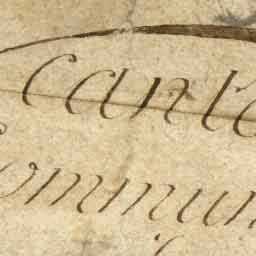 canta
Commun